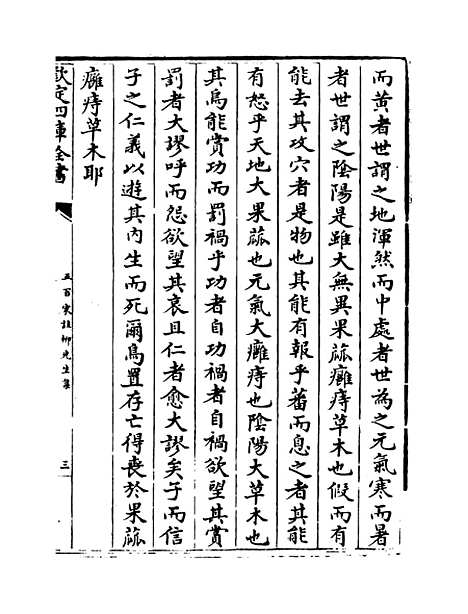 而黄者世謂之地渾然而中處者世為之元氣寒而暑
者世謂之陰陽是雖大無異果蓏癰痔草木也假而有
能去其攻穴者是物也其能有報乎蕃而息之者其能
有怒乎天地大果蓏也元氣大癰痔也陰陽大草木也
其烏能賞功而罰禍乎功者自功禍者自禍欲望其賞
罰者大謬呼而怨欲望其哀且仁者愈大謬矣子而信
子之仁義以遊其内生而死爾烏置存亡得喪於果蓏
癰痔草木耶
欽定四庫全書
五百家註柳先生集
三